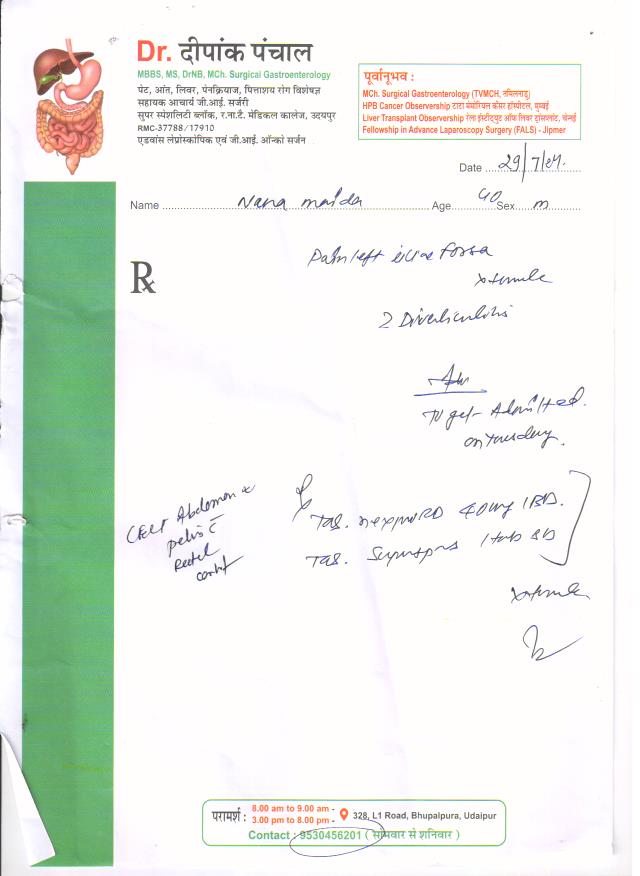 Dr. दीपांक पंचाल
MBBS, MS, DrNB, MCh. Surgical Gastroenterology
पेट, आंत, लिवर, पेनक्रियाज, पित्ताशय रोग विशेषज्ञ
सहायक आचार्य जी.आई. सर्जरी
सुपर स्पेशलिटी ब्लॉक, र.ना.टै. मेडिकल कालेज, उदयपुर
RMC-37788/17910
एडवांस लेप्रोस्कोपिक एवं जी.आई. ऑन्को सर्जन
पूर्वानूभव :
MCh. Surgical Gastroenterology (TVMCH, तमिलनाडु)
HPB Cancer Observership टाटा मेमोरियल कैंसर हॉस्पीटल, मुम्बई
Liver Transplant Observership रेला इंस्टीट्यूट ऑफ लिवर हॉस्पीटल, चेन्नई
Fellowship in Advance Laparoscopy Surgery (FALS) - Jipmer
Date 29/7/24
Name Nana Age 40 Sex m
Rx
Pain left iliac fossa
2 Diverticulitis
Adv
To get Admitted
on Tuesday
CECT Abdomen &
pelvis c̄
Rectal
Tab. 40mg 1BD.
Tab. 1tab BD
परामर्श :
8.00 am to 9.00 am -
3.00 pm to 8.00 pm -
328, L1 Road, Bhupalpura, Udaipur
Contact : 9530456201 ( सोमवार से शनिवार )